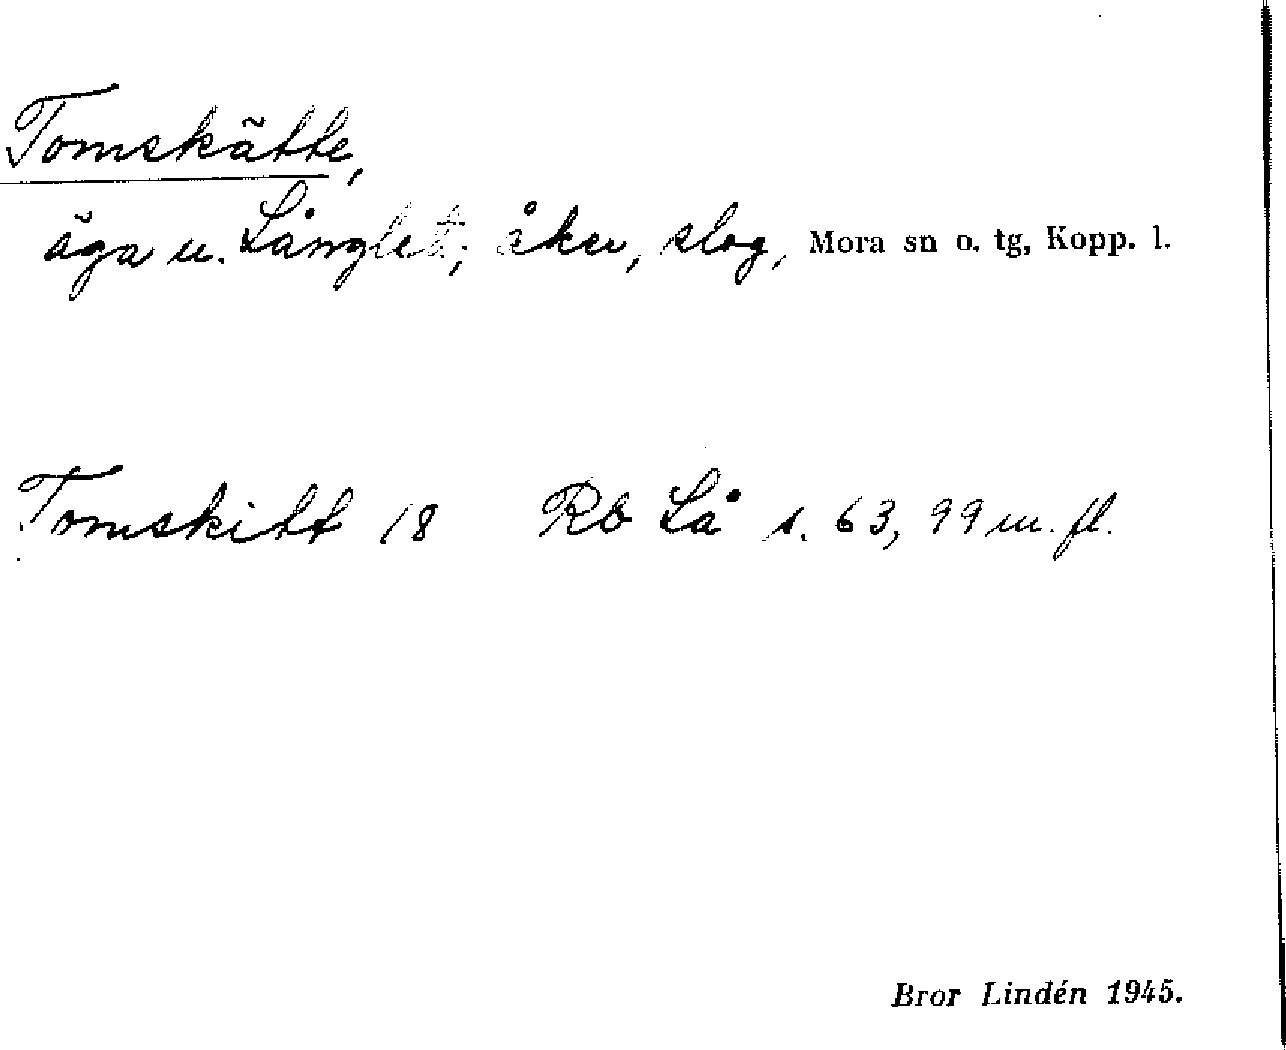 Tomskätte,
äga u. Långlet; åker, slog, Mora sn o. tg, Kopp. l.
Tomskitt 18 Rb Lå s. 63, 99 m. fl.
Bror Lindén 1945.